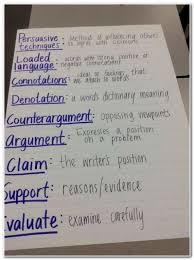 Persuasive : Method of influencing others
techniques : to agree with someone
Loaded : words with strong positive or
language : negative connotations
Connotations : ideas or feelings that
we attach to words
Denotation : a words dictionary meaning
Counterargument : opposing viewpoints
Argument : Expresses a position
on a problem
Claim : the writer's position
Support : reasons/evidence
Evaluate : examine carefully